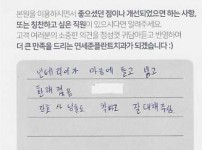 본원을 이용하시면서 좋으셨던 점이나 개선되었으면 하는 사항,
또는 칭찬하고 싶은 직원이 있으시다면 말해주세요.
고객 여러분의 소중한 의견을 항상 귀담아듣고 반영하며
더 큰 만족을 드리는 연세춘플란트치과가 되겠습니다 :)
인테리어가 마음에 들고 넓고
친절
잘 대해주심